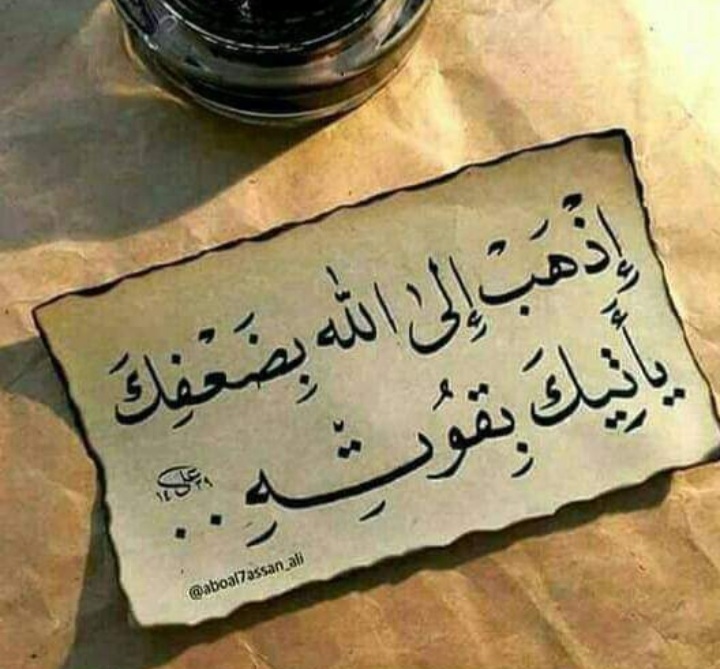 إِذْهَبْ إِلىٰ اللّٰه بِضَعْفِكَ
يأَتِيكَ بِقوُتِّهِ ..
علي
١٤٣٩
@aboal7assan_ali